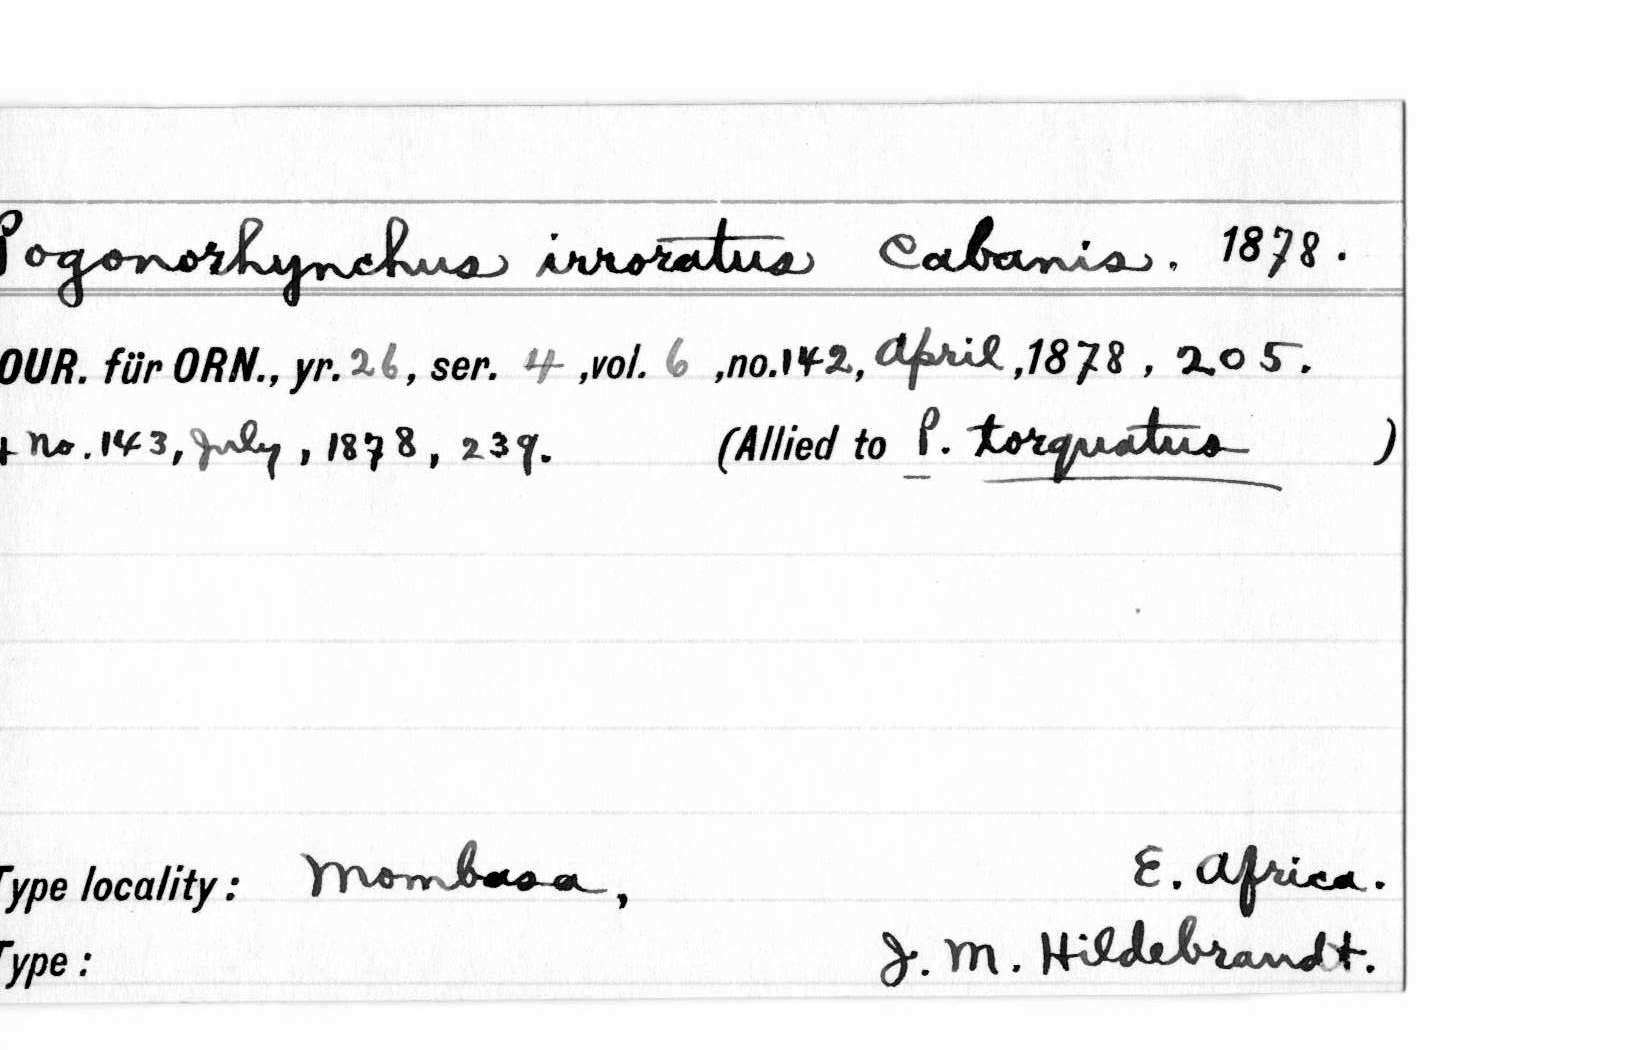 Pogonorhynchus irroratus Cabanis. 1878.
OUR. für ORN., yr. 26, ser. 4 ,vol. 6 ,no.142, April ,1878 , 205.
+ no. 143, July , 1878 , 239. (Allied to P. torquatus )
Type locality: Mombasa, E. Africa.
Type: J. M. Hildebrandt.